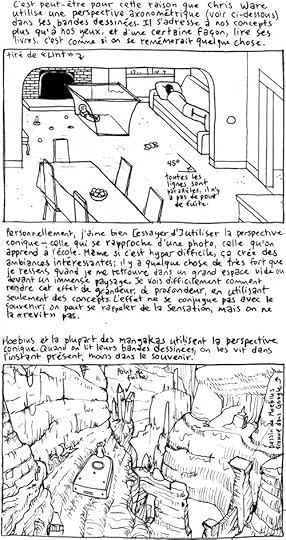 C'est peut-être pour cette raison que Chris Ware
utilise une perspective axonométrique (voir ci-dessous)
dans ses bandes dessinées. Il s'adresse à nos concepts
plus qu'à nos yeux, et d'une certaine façon, lire ses
livres, c'est comme si on se remémorait quelque chose.
tiré de «Lint»
45°
toutes les
lignes sont
parallèles, il n'y
a pas de point
de fuite.
Personnellement, j'aime bien (essayer d')utiliser la perspective
conique – celle qui se rapproche d'une photo, celle qu'on
apprend à l'école. Même si c'est hyper difficile, ça crée des
ambiances intéressantes; il y a quelque chose de très fort que
je ressens quand je me retrouve dans un grand espace vide ou
devant un immense paysage. Je vois difficilement comment
rendre cet effet de grandeur, de profondeur, en utilisant
seulement des concepts. L'effet ne se conjugue pas avec le
souvenir; on peut se rappeler de la sensation, mais on ne
la «revit» pas.
Moebius et la plupart des mangakas utilisent la perspective
conique. Quand on lit leurs bandes dessinées, on les vit dans
l'instant présent, moins dans le souvenir.
Point de
fuite
dessin de Moebius
trouvé dans Google